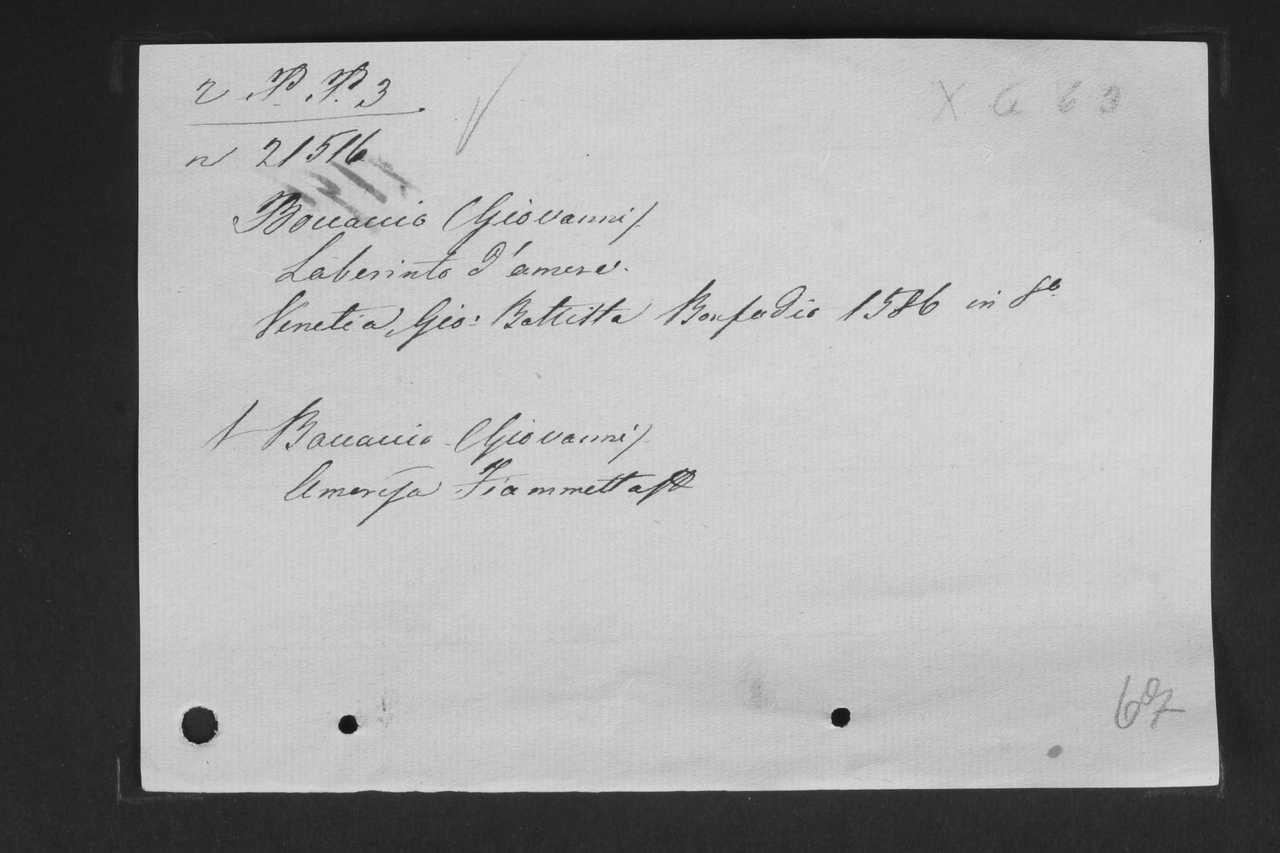 2 P. P. 3
X G 63
n 21516
Boccaccio (Giovanni)
Laberinto d'amore.
Venetia, Gio: Battista Bonfadio 1586 in 8º
Boccaccio (Giovanni)
Amorosa Fiammetta
687